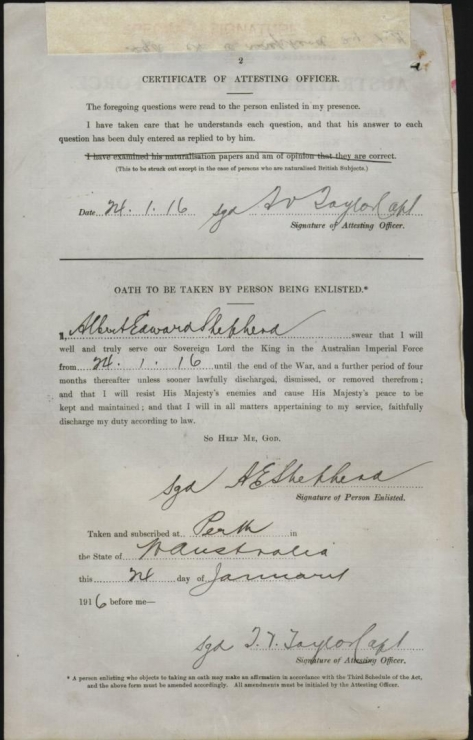 2
CERTIFICATE OF ATTESTING OFFICER.
The foregoing questions were read to the person enlisted in my presence.
I have taken care that he understands each question, and that his answer to each
question has been duly entered as replied to by him.
I have examined his naturalisation papers and am of opinion that they are correct.
(This to be struck out except in the case of persons who are naturalised British Subjects.)
Date 24. 1. 16 sgd Taylor Capt
Signature of Attesting Officer.
OATH TO BE TAKEN BY PERSON BEING ENLISTED.*
I, Albert Edward Shepherd swear that I will
well and truly serve our Sovereign Lord the King in the Australian Imperial Force
from 24. 1. 16 until the end of the War, and a further period of four
months thereafter unless sooner lawfully discharged, dismissed, or removed therefrom;
and that I will resist His Majesty's enemies and cause His Majesty's peace to be
kept and maintained; and that I will in all matters appertaining to my service, faithfully
discharge my duty according to law.
So Help Me, God.
sgd A E Shepherd
Signature of Person Enlisted.
Taken and subscribed at Perth in
the State of W Australia
this 24 day of January
1916 before me—
sgd Taylor Capt
Signature of Attesting Officer.
* A person enlisting who objects to taking an oath may make an affirmation in accordance with the Third Schedule of the Act,
and the above form must be amended accordingly. All amendments must be initialed by the Attesting Officer.